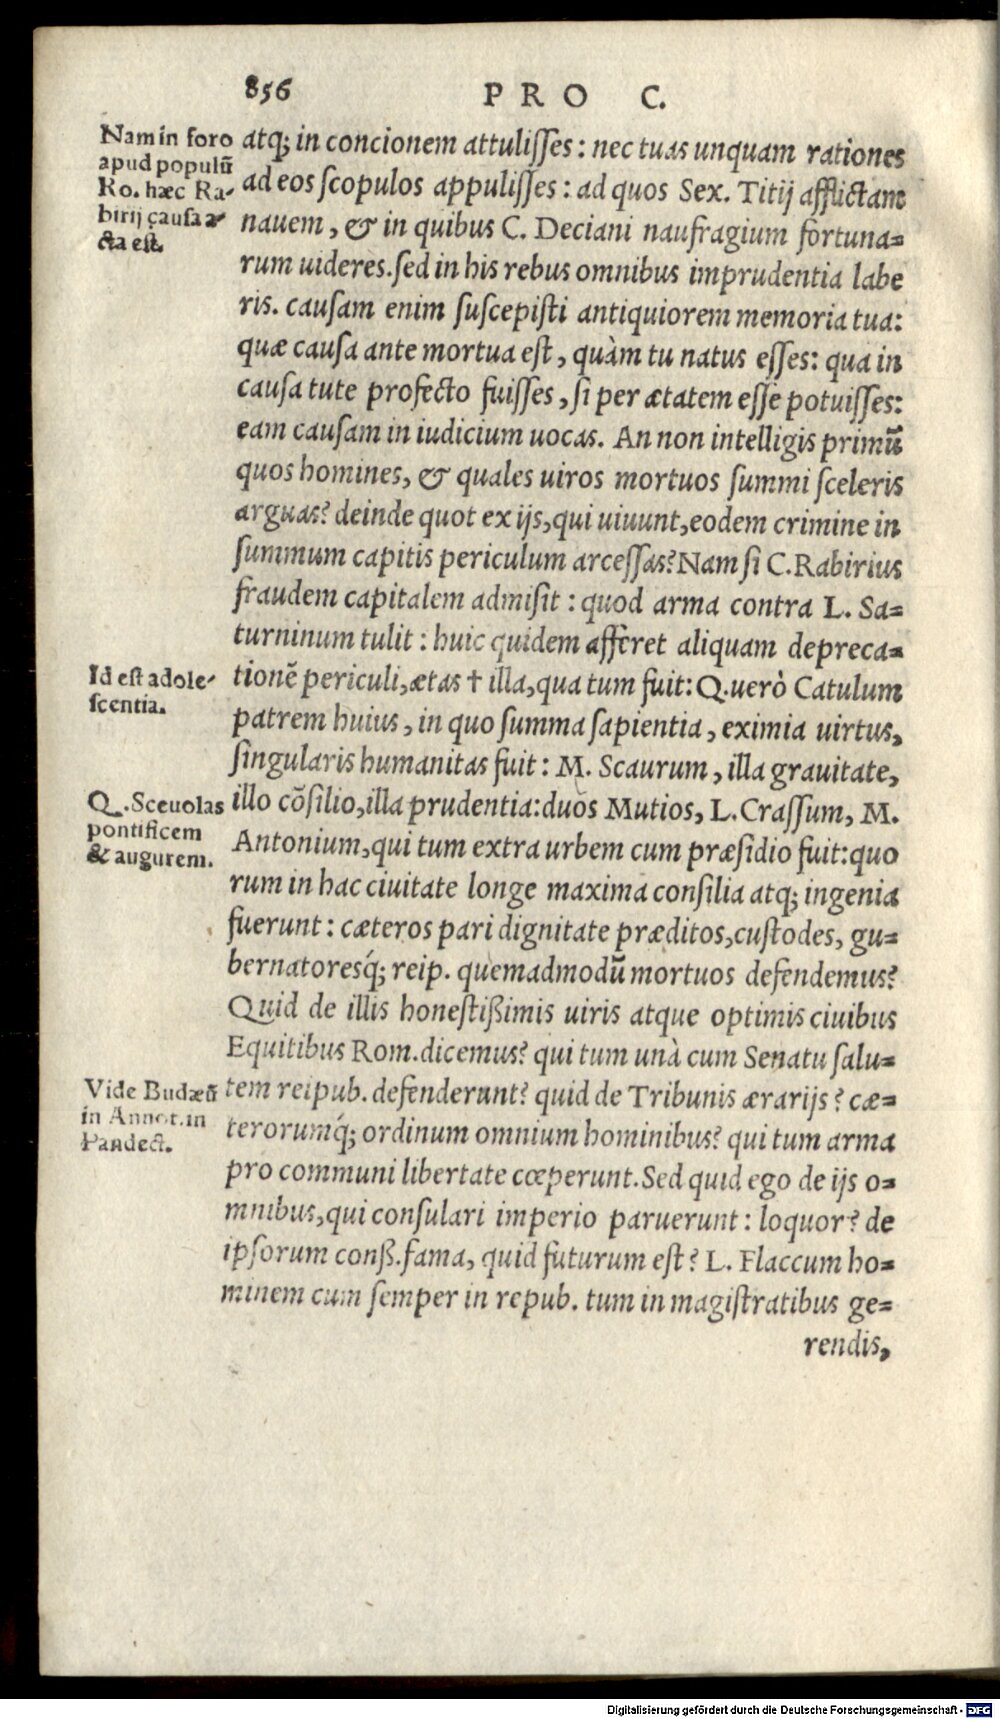 856 PRO C.
Nam in foro
apud populũ
Ro. hæc Ra-
birij causa a-
cta est.
atq; in concionem attulisses: nec tuas unquam rationes
ad eos scopulos appulisses: ad quos Sex. Titij afflictam
nauem, & in quibus C. Deciani naufragium fortuna=
rum uideres. sed in his rebus omnibus imprudentia labe
ris. causam enim suscepisti antiquiorem memoria tua:
quæ causa ante mortua est, quàm tu natus esses: qua in
causa tute profecto fuisses, si per ætatem esse potuisses:
eam causam in iudicium uocas. An non intelligis primũ
quos homines, & quales uiros mortuos summi sceleris
arguas? deinde quot ex ijs, qui uiuunt, eodem crimine in
summum capitis periculum arcessas? Nam si C. Rabirius
fraudem capitalem admisit: quod arma contra L. Sa=
turninum tulit: huic quidem afferet aliquam depreca=
Id est adole-
scentia.
tionẽ periculi, ætas † illa, qua tum fuit: Q. uerò Catulum
patrem huius, in quo summa sapientia, eximia uirtus,
singularis humanitas fuit: M. Scaurum, illa grauitate,
Q. Sceuolas
pontificem
& augurem.
illo cõsilio, illa prudentia: duos Mutios, L. Crassum, M.
Antonium, qui tum extra urbem cum præsidio fuit: quo
rum in hac ciuitate longe maxima consilia atq; ingenia
fuerunt: cæteros pari dignitate præditos, custodes, gu=
bernatoresq́; reip. quemadmodũ mortuos defendemus?
Quid de illis honestißimis uiris atque optimis ciuibus
Equitibus Rom. dicemus? qui tum unà cum Senatu salu=
Vide Budæũ
in Annot. in
Pandect.
tem reipub. defenderunt? quid de Tribunis ærarijs? cæ=
terorumq́; ordinum omnium hominibus? qui tum arma
pro communi libertate cœperunt. Sed quid ego de ijs o=
mnibus, qui consulari imperio paruerunt: loquor? de
ipsorum conß. fama, quid futurum est? L. Flaccum ho=
minem cum semper in repub. tum in magistratibus ge=
rendis,
Digitalisierung gefördert durch die Deutsche Forschungsgemeinschaft - DFG